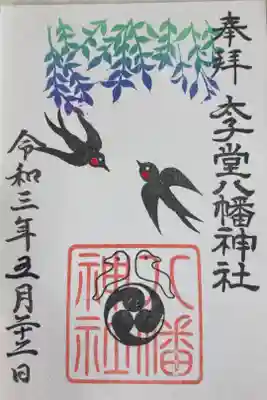 奉拝
太子堂八幡神社
八幡
神社
令和三年五月二十二日